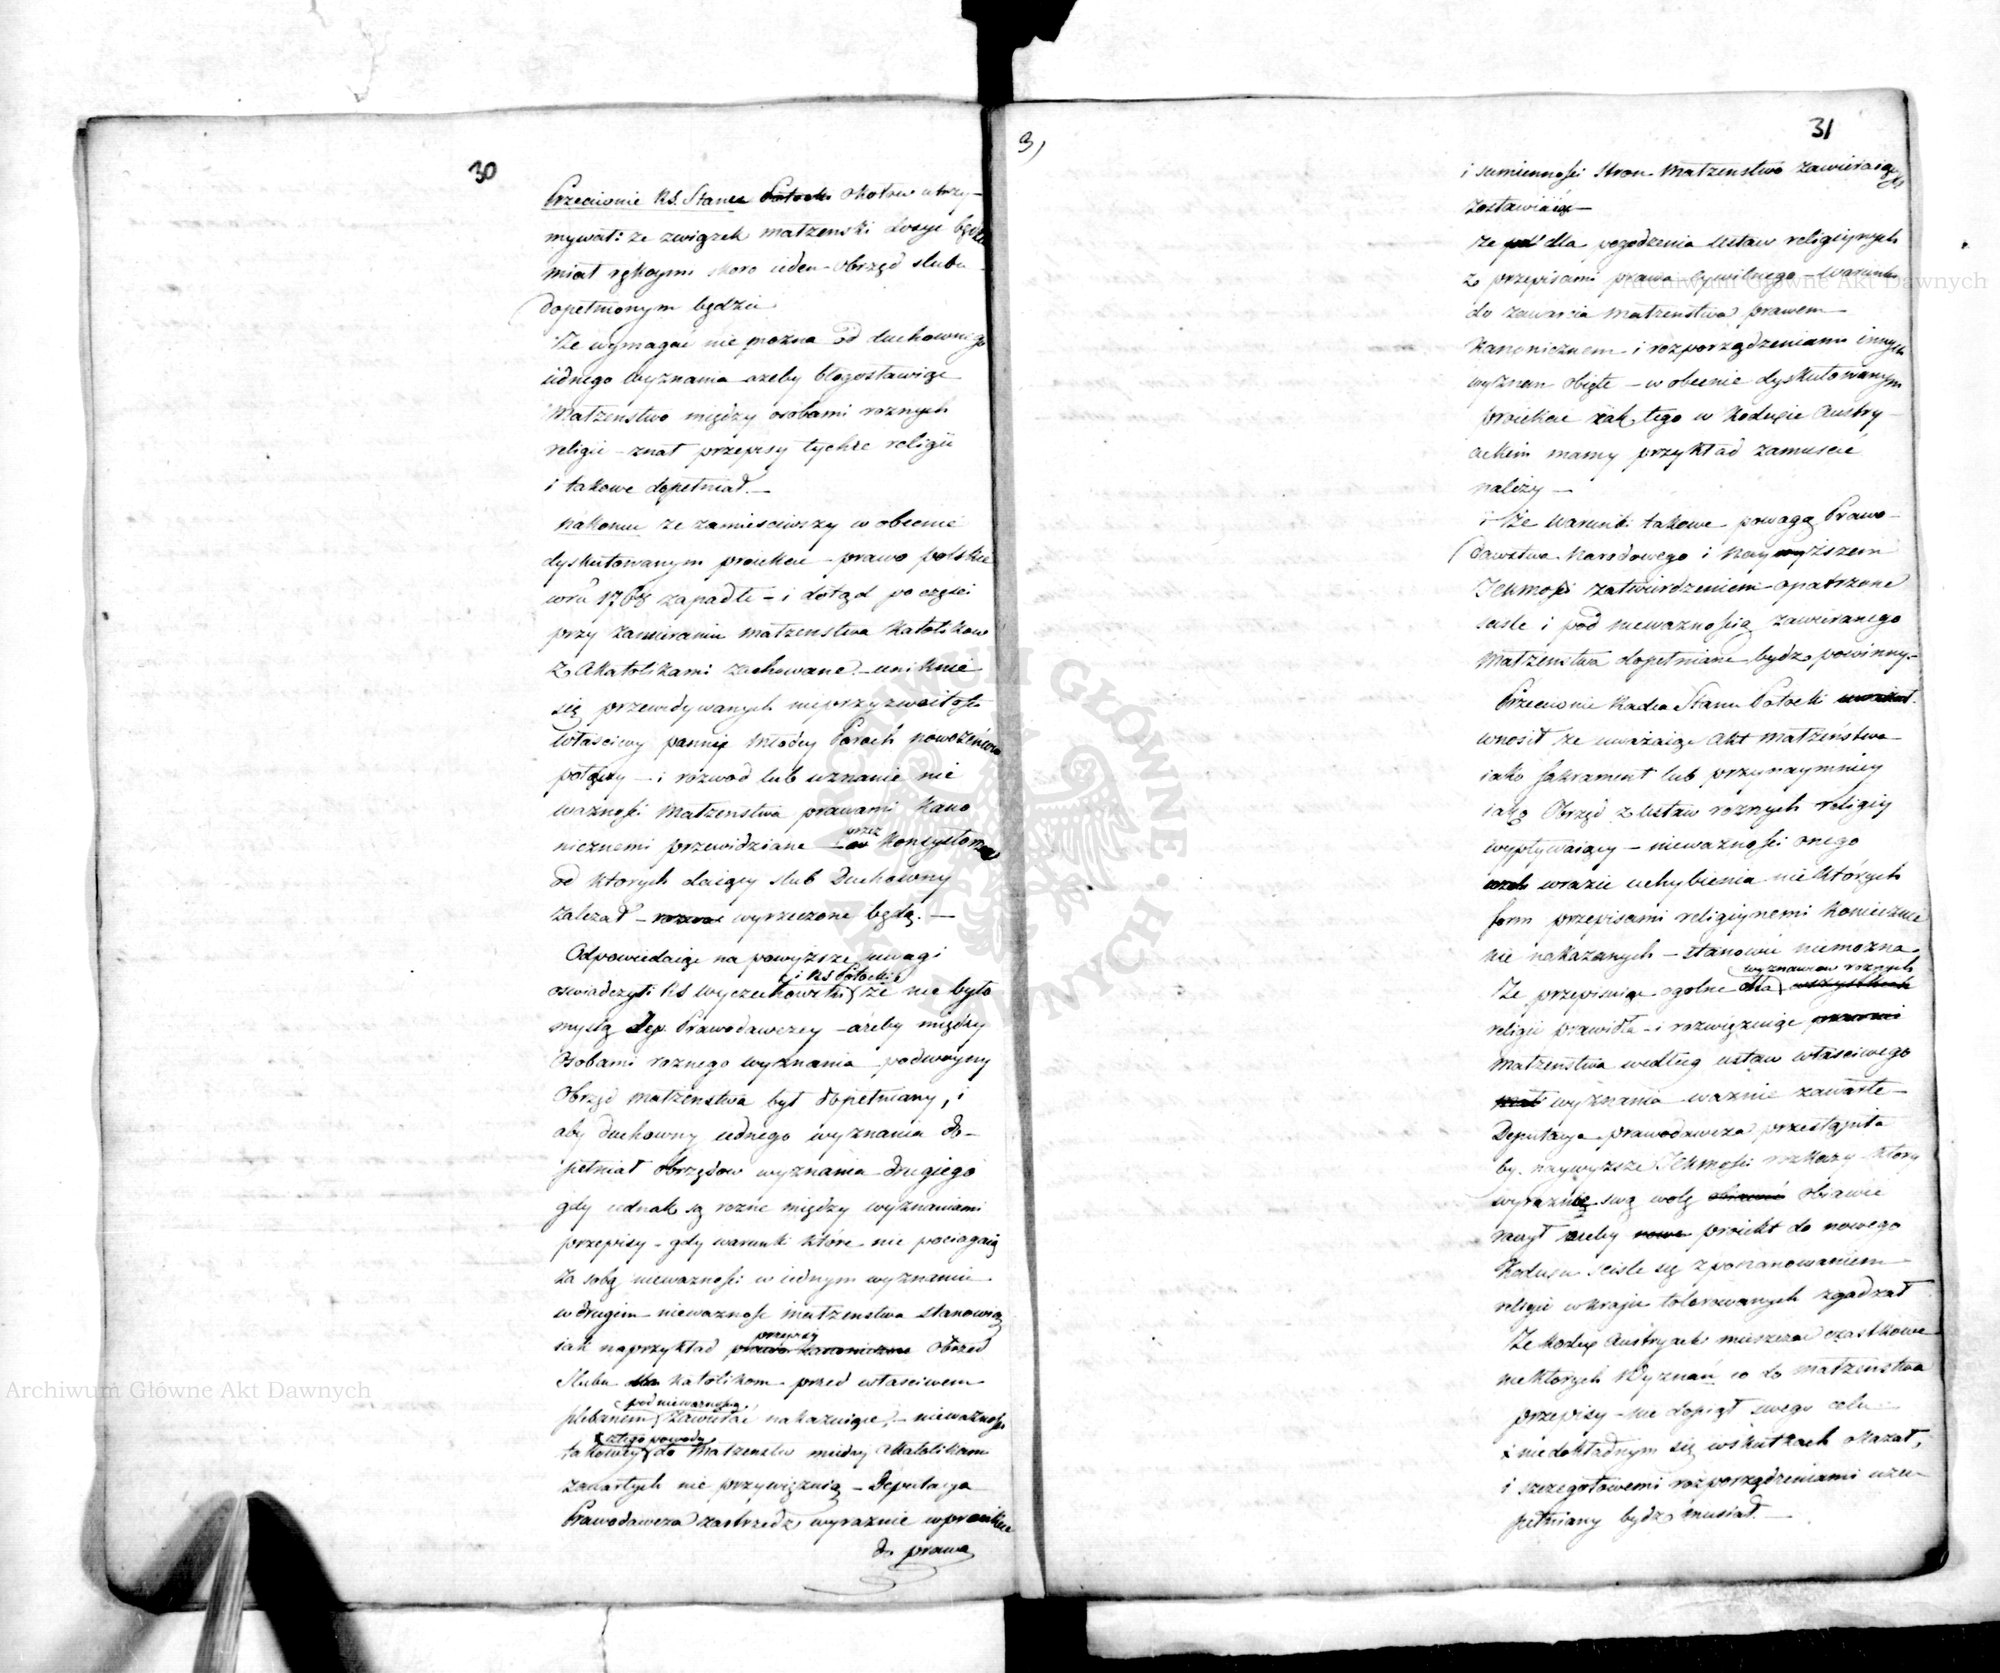 30
Przeciwnie RS. Stanu Potocki około utrzy-
mywał: że związek małzenski dosyć będzie
miał rękoymi skoro ieden obrzęd slubu
dopełnionym będzie
Że wymagać nie można od duchownego
iednego wyznania azeby błogosławiąc
Małzenstwo między osobami roznych
religii – znał przepisy tychże religii
i takowe dopełniał. —
Nakoniec ze zamiesciwszy w obecnie
dyskutowanym proiekcie – prawo polskie
w ru 1768 zapadłe – i dotąd po części
przy zawieraniu małzenstwa Katolikow
z Akatolikami zachowane – uniknie
się przewidywanych nieprzyzwoitosci
właściwy pannie młodey Paroch nowożeńców
połączy – i rozwod lub uznanie nie
waznosci Małzenstwa prawami Kano
nicznemi przewidziane – przez Konsystorze
od ktorych daiący slub Duchowny
zależał – wyrzeczone będą. —
Odpowiedaiąc na powyższe uwagi
i RS Potockie
oswiadczył RS Wyczechowski że nie było
myslą Dep. Prawodawczey – ażeby między
Osobami roznego wyznania podwoyny
Obrzęd małzenstwa był dopełniany, i
aby duchowny iednego wyznania do-
pełniał obrzędow wyznania drugiego
gdy iednak są rozne między wyznaniami
przepisy – gdy warunki które nie pociągaią
za sobą niewaznosci w iednym wyznaniu
w drugim niewaznosc małzenstwa stanowią
przepisy
iak naprzykład prawo kanoniczne obrzęd
Slubu dla katolikom przed właściwem
pod niewaznoscią
plebanem zawierać nakazuiące, – niewaznosci
z tego powodu
takowey do Małzenstw miedzy Akatolikami
zawartych nie przywięzuią – Deputacya
Prawodawcza zastrzedz wyraznie w proiekcie
do prawa
3,
31
i sumiennosci stron Małzenstwo zawieraiących
zostawiaiąc —
że dla pogodzenia Ustaw religiynych
z przepisami prawa cywilnego – warunki
do zawarcia małzenstwa prawem
Kanonicznem i rozporządzeniami innych
wyznan obięte – w obecnie dyskutowanym
proiekcie iak tego w Kodexie Austry-
ackim mamy przykład zamiescić
należy —
i Że warunki takowe powagą Prawo-
dawstwa Narodowego i Naywyższem
JCKMosci zatwierdzeniem opatrzone
scisle i pod niewaznoscią zawieranego
Małzenstwa dopełniane bydz powinny. —
Przeciwnie Radca Stanu Potocki uwazał
wnosił że uważaiąc Akt Małżeństwa
iako Sakrament lub przynaymniey
iako Obrzęd z Ustaw roznych religiy
wypływaiący – niewaznosci onego
w razie uchybienia niektórych
form przepisami religiynemi koniecznie
nie nakazanych – stanowić niemozna.
wyznawcow roznych
Że przepisuiąc ogolne dla wszystkich
religii prawidła – i rozwięzuiąc prawami
Małzenstwa według ustaw właściwego
wyznania waznie zawarte —
Deputacya prawodawcza przestąpiła
by naywyższe JCKMosci rozkazy który
wyraznie swą wolę obiawić
raczył żeby nowe proiekt do nowego
Kodexu scisle się z poszanowaniem
religii w kraiu tolerowanych zgadzał
Że Kodex Austryacki mieszcząc cząstkowe
niektorych Wyznań co do małżeństwa
przepisy – nie dopiął swego celu
i niedokładnym się w skutkach okazał,
i szczegołowemi rozporządzeniami uzu-
pełniany bydz musiał. —
Archiwum Główne Akt Dawnych
Archiwum Główne Akt Dawnych
ARCHIWUM GŁÓWNE AKT DAWNYCH